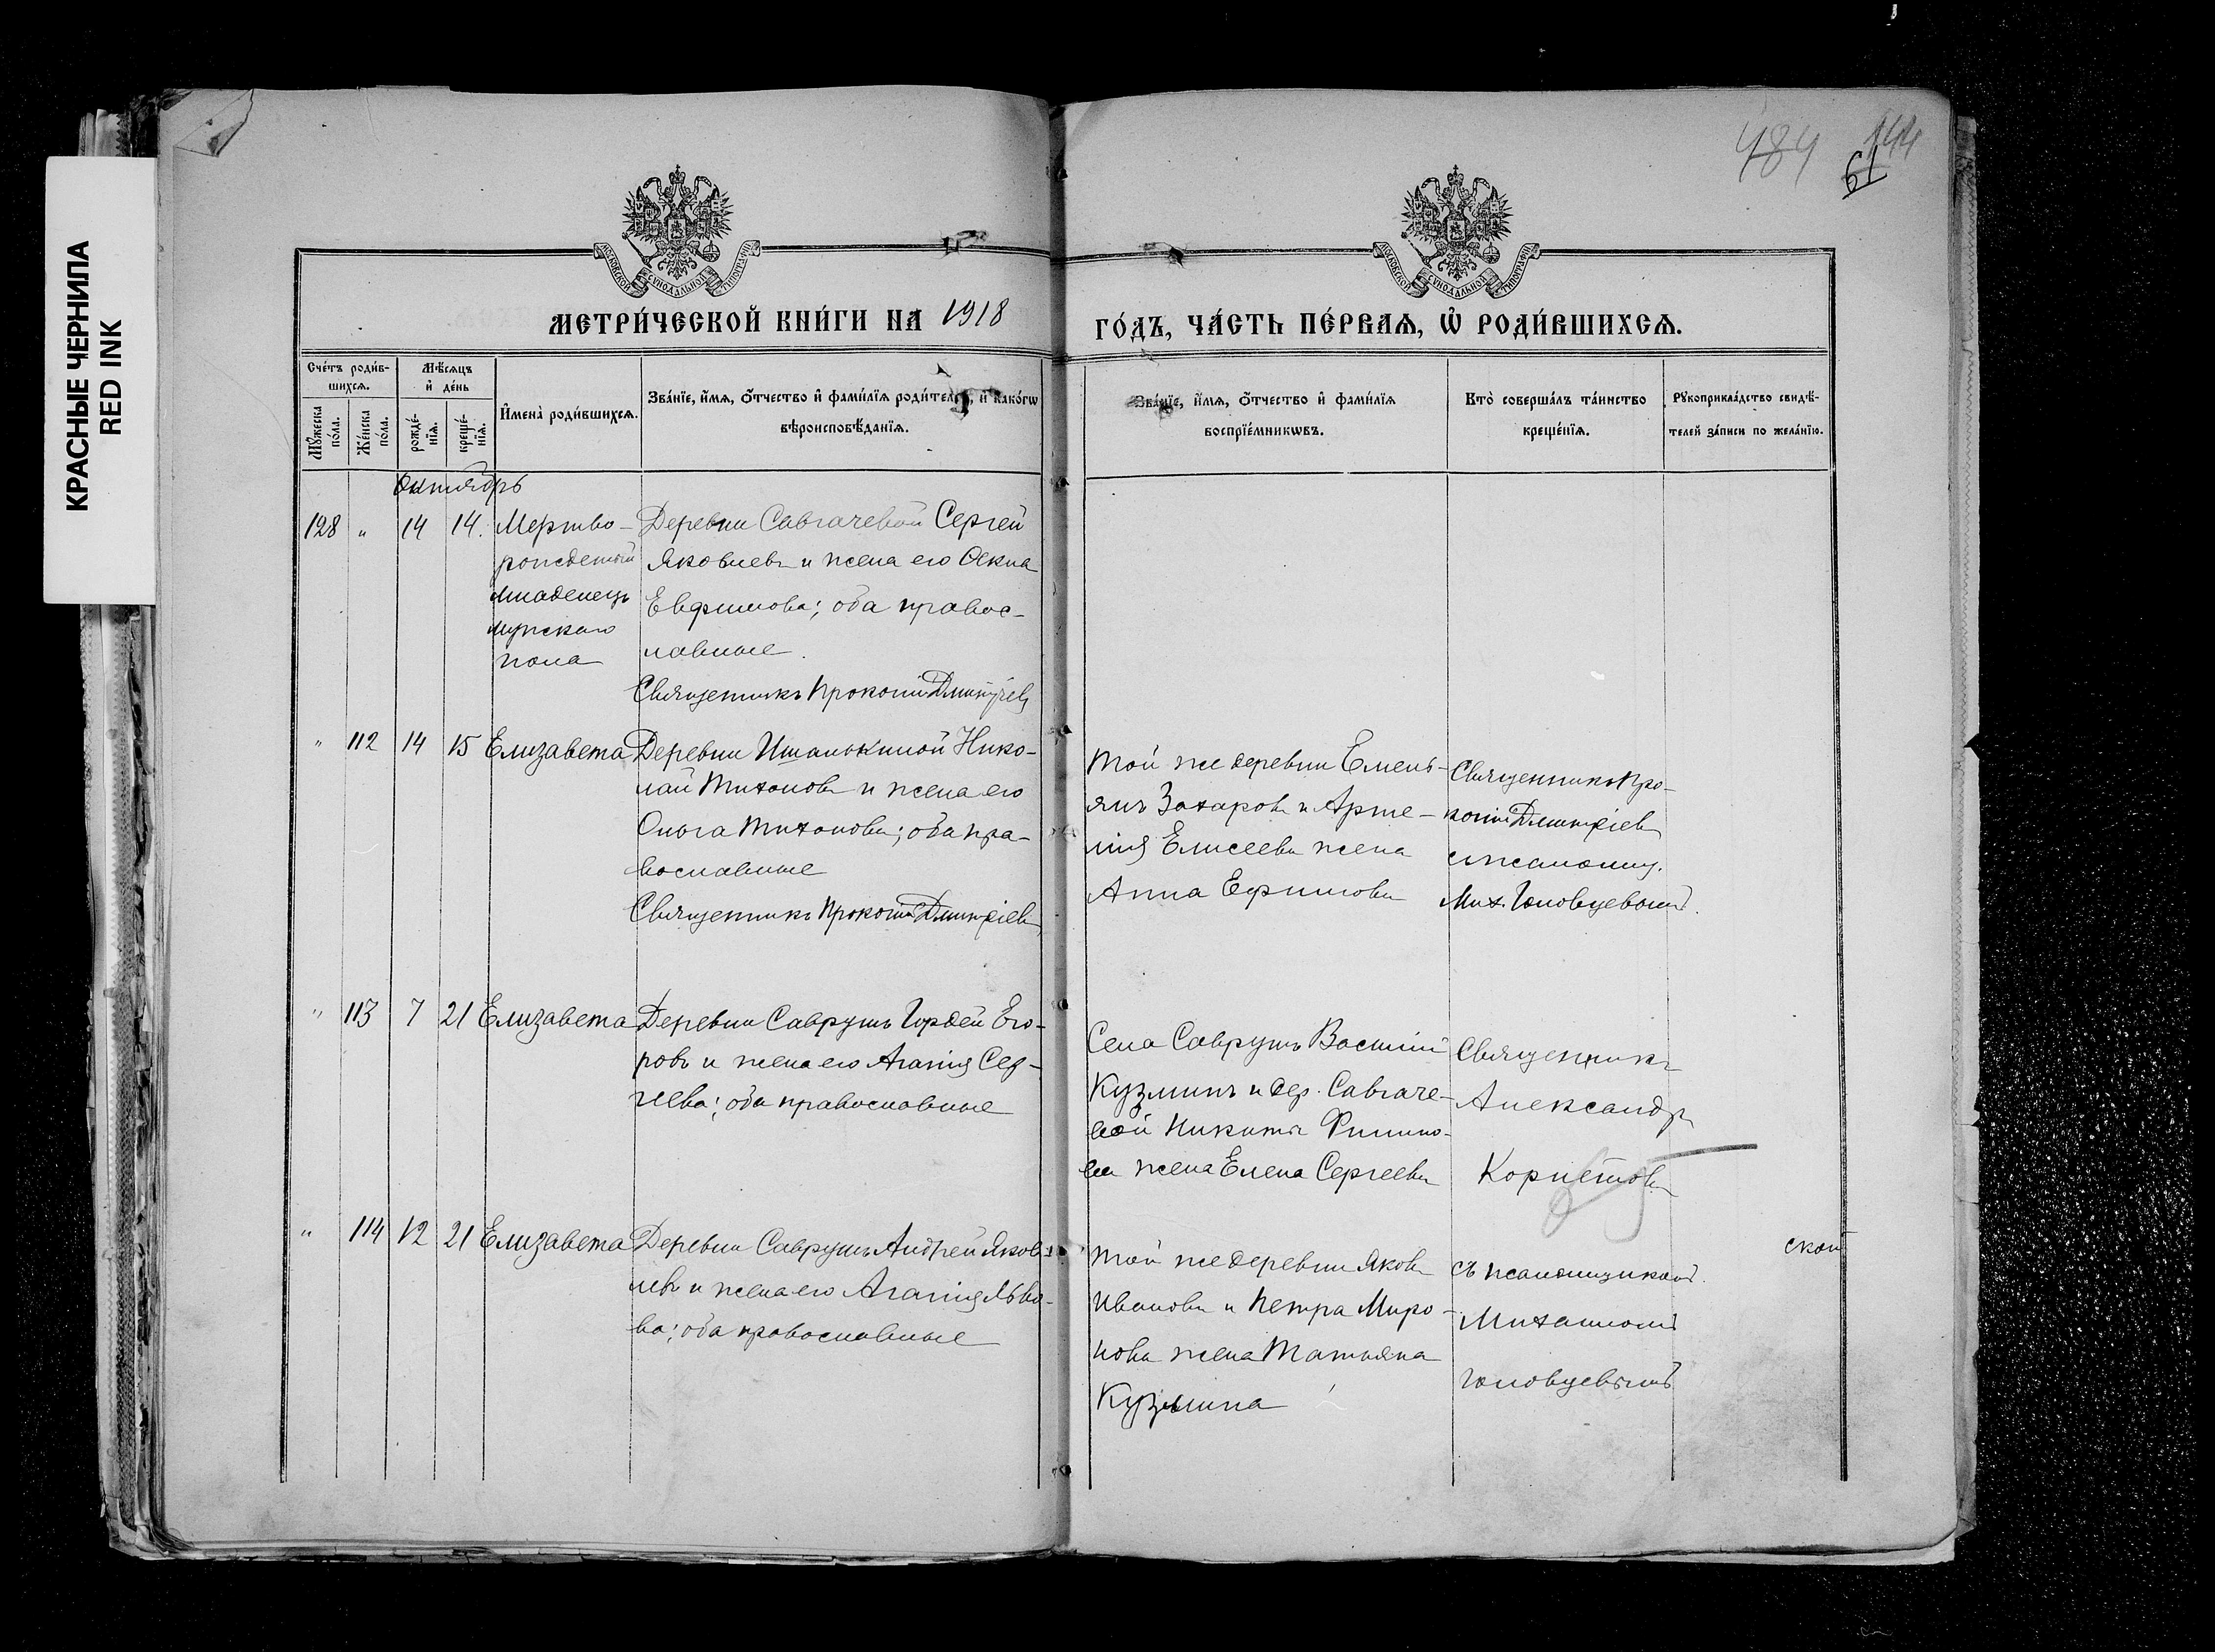 КРАСНЫЕ ЧЕРНИЛА
RED INK
484 144
61
МОСКОВСКОЙ СѴНОДАЛЬНОЙ ТИПОГРАФІИ
МОСКОВСКОЙ СѴНОДАЛЬНОЙ ТИПОГРАФІИ
МЕТРИ́ЧЕСКОЙ КНИ́ГИ НА 1918
ГО́ДЪ, ЧА́СТЬ ПЕ́РВАѦ, Ѡ҆ РОДИ́ВШИХСѦ.
Сче́тъ роди́в-
шихсѧ.
Мꙋ́жеска
по́ла.
Же́нска
по́ла.
Мѣ́сѧцъ
и҆ де́нь
рожде́-
нїѧ.
креще́-
нїѧ.
И҆мена̀ роди́вшихсѧ.
Зва́нїе, и҆́мѧ, ѻ҆́тчество и҆ фами́лїѧ роди́телей, и҆ како́гѡ
вѣроисповѣ́данїѧ.
Зва́нїе, и҆́мѧ, ѻ҆́тчество и҆ фами́лїѧ
воспрїе́мникѡвъ.
Кто̀ соверша́лъ та́инство
креще́нїѧ.
Рꙋкоприкла́дство свидѣ́-
телей за́писи по жела́нїю.
Октябрь
128 " 14 14. Мертво-
рожденный
младенецъ
мужскаго
пола
Деревни Савгачевой Сергей
Яковлевъ и жена его Акка
Евфимова; оба правос-
лавные.
Священникъ Прокопій Димитріевъ
" 112 14 15 Елизавета
Деревни Ишалькиной Нико-
лай Тихоновъ и жена его
Ольга Тихонова; оба пра-
вославные
Священникъ Прокопій Димитріевъ
Той же деревни Емель-
янъ Захаровъ и Арте-
мія Елисеева жена
Анна Ефимова
Священникъ Про-
копій Димитріевъ
с псаломщ.
Мих. Головцевымъ.
" 113 7 21 Елизавета
Деревни Саврушъ Гордей Его-
ровъ и жена его Агапія Сер-
геева; оба православные
Села Саврушъ Василій
Кузминъ и дер. Савгаче-
вой Никиты Филипо-
ва жена Елена Сергеева
Священникъ
Александръ
" 114 12 21 Елизавета
Деревни Саврушъ Андрей Яков-
левъ и жена его Агапія Льво-
ва; оба православные
Той же деревни Яковъ
Ивановъ и Петра Миро-
нова жена Татьяна
Кузьмина
съ псаломщикомъ
Михаиломъ
Головцевымъ